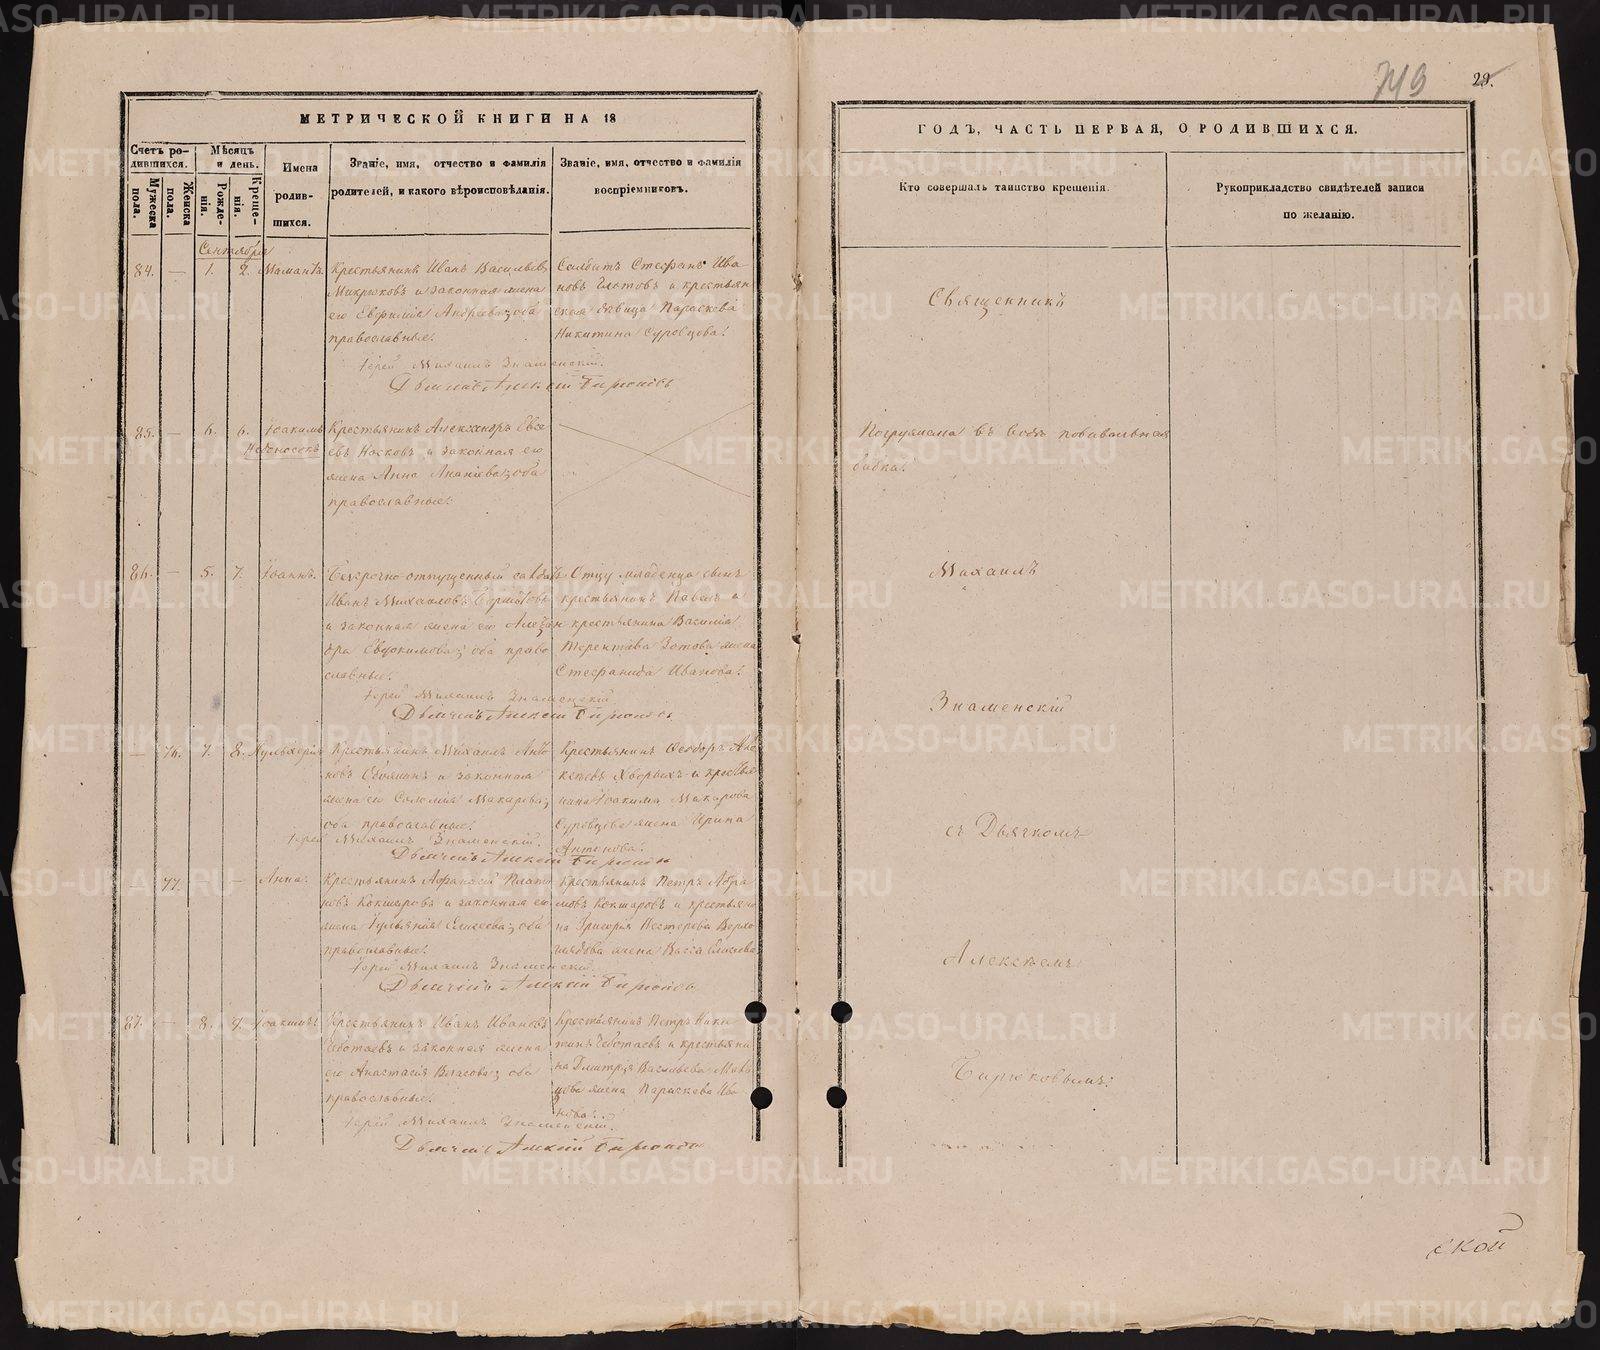 749
29.
МЕТРИЧЕСКОЙ КНИГИ НА 18
ГОДЪ, ЧАСТЬ ПЕРВАЯ, О РОДИВШИХСЯ.
Счетъ ро-
дившихся.
Мужеска
пола.
Женска
пола.
Мѣсяцъ
и день.
Рожде-
нія.
Креще-
нія.
Имена
родив-
шихся.
Званіе, имя, отчество и фамилія
родителей, и какого вѣроисповѣданія.
Званіе, имя, отчество и фамилія
воспріемниковъ.
Кто совершалъ таинство крещенія.
Рукоприкладство свидѣтелей записи
по желанію.
Сентября
84. — 1. 2. Мамантъ
Крестьянинъ Иванъ Васильевъ
Микрюковъ и законная жена
его Евфимія Андреева; оба
православные.
Солдатъ Стефанъ Ива-
новъ и крестьян
ская дѣвица Параскева
Никитина Суровцова.
Іерей Михаилъ Знаменскій.
Дьячекъ Алексій Бирюковъ
85. — 6. 6. Іоакимъ
Крестьянинъ Александръ Евсе
евъ Носковъ и законная его
жена Анна Ананіева; оба
православные.
Погружала въ воду повивальная
бабка.
86. — 5. 7. Іоаннъ.
Безсрочно-отпущенный солдатъ
Иванъ Михайловъ
и законная жена его Алексан
дра Евдокимова; оба право
славные.
Отцу младенца сынъ
крестьянинъ Павелъ и
крестьянина Василія
Терентьева Зотова жена
Стефанида Иванова.
Іерей Михаилъ Знаменскій
Дьячекъ Алексій Бирюковъ
— 76. 7. 8. Пульхерія
Крестьянинъ Михаилъ Анто
новъ и законная
жена его Соломія Макарова;
оба православные.
Крестьянинъ Ѳеодоръ
Хворыхъ и крестья
нина Іоакима Макарова
Суровцова жена Ирина
Антонова.
Іерей Михаилъ Знаменскій.
Дьячекъ Алексій Бирюковъ
— 77. — — Анна.
Крестьянинъ Афанасій Плато
новъ Кокшаровъ и законная его
жена Іульянія Елисеева; оба
православные.
Крестьянинъ Петръ Абра
мовъ Кокшаровъ и крестьяни
на Григорія Нестерова
жена Васса Елисеева
Іерей Михаилъ Знаменскій.
Дьячекъ Алексій Бирюковъ
87. — 8. 9. Іоакимъ.
Крестьянинъ Иванъ Ивановъ
Чеботаевъ и законная жена
его Анастасія Власова; оба
православные.
Крестьянинъ Петръ Ники
тинъ Чеботаевъ и крестьяни
на Димитрія Васильева
жена Параскева Ива
нова.
Іерей Михаилъ Знаменскій.
Дьячекъ Алексій Бирюковъ
Священникъ
Михаилъ
Знаменскій
съ Дьячкомъ
Алексѣемъ
Бирюковымъ.
ской
METRIKI.GASO-URAL.RU